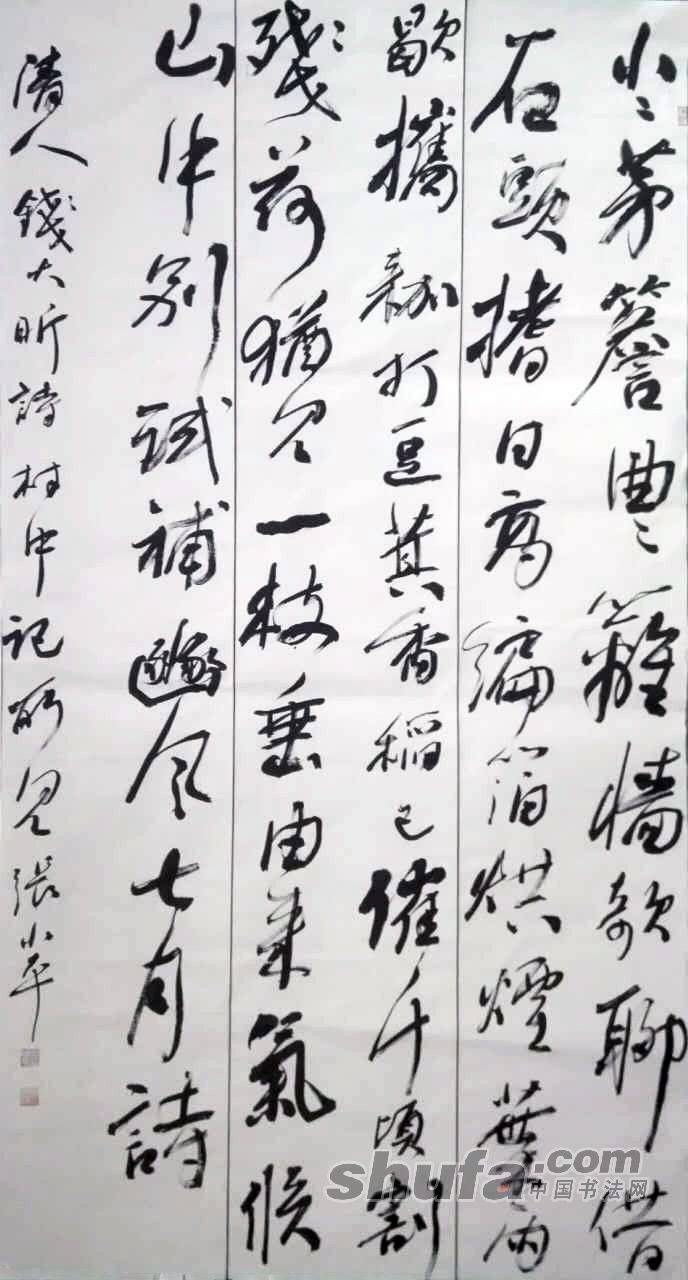 小〻茅簷曲〻籬牆欹聊借
石頭搘日高編箔烘煙葉雨
歇攜枷打豆萁香稻已催千頃割
殘荷猶見一枝垂由來氣候
山中別試補豳風七月詩
清人錢大昕詩村中記所見張小平
shufa.com
中国书法网